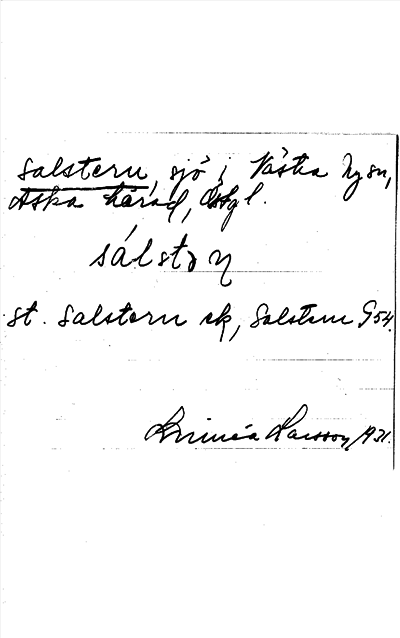 Salstern, sjö i Västra Ny sn,
Aska härad, Östgl.
sálstəɳ
st. Salstern ek, Salstern G54.
Linnéa Larsson, 1931.